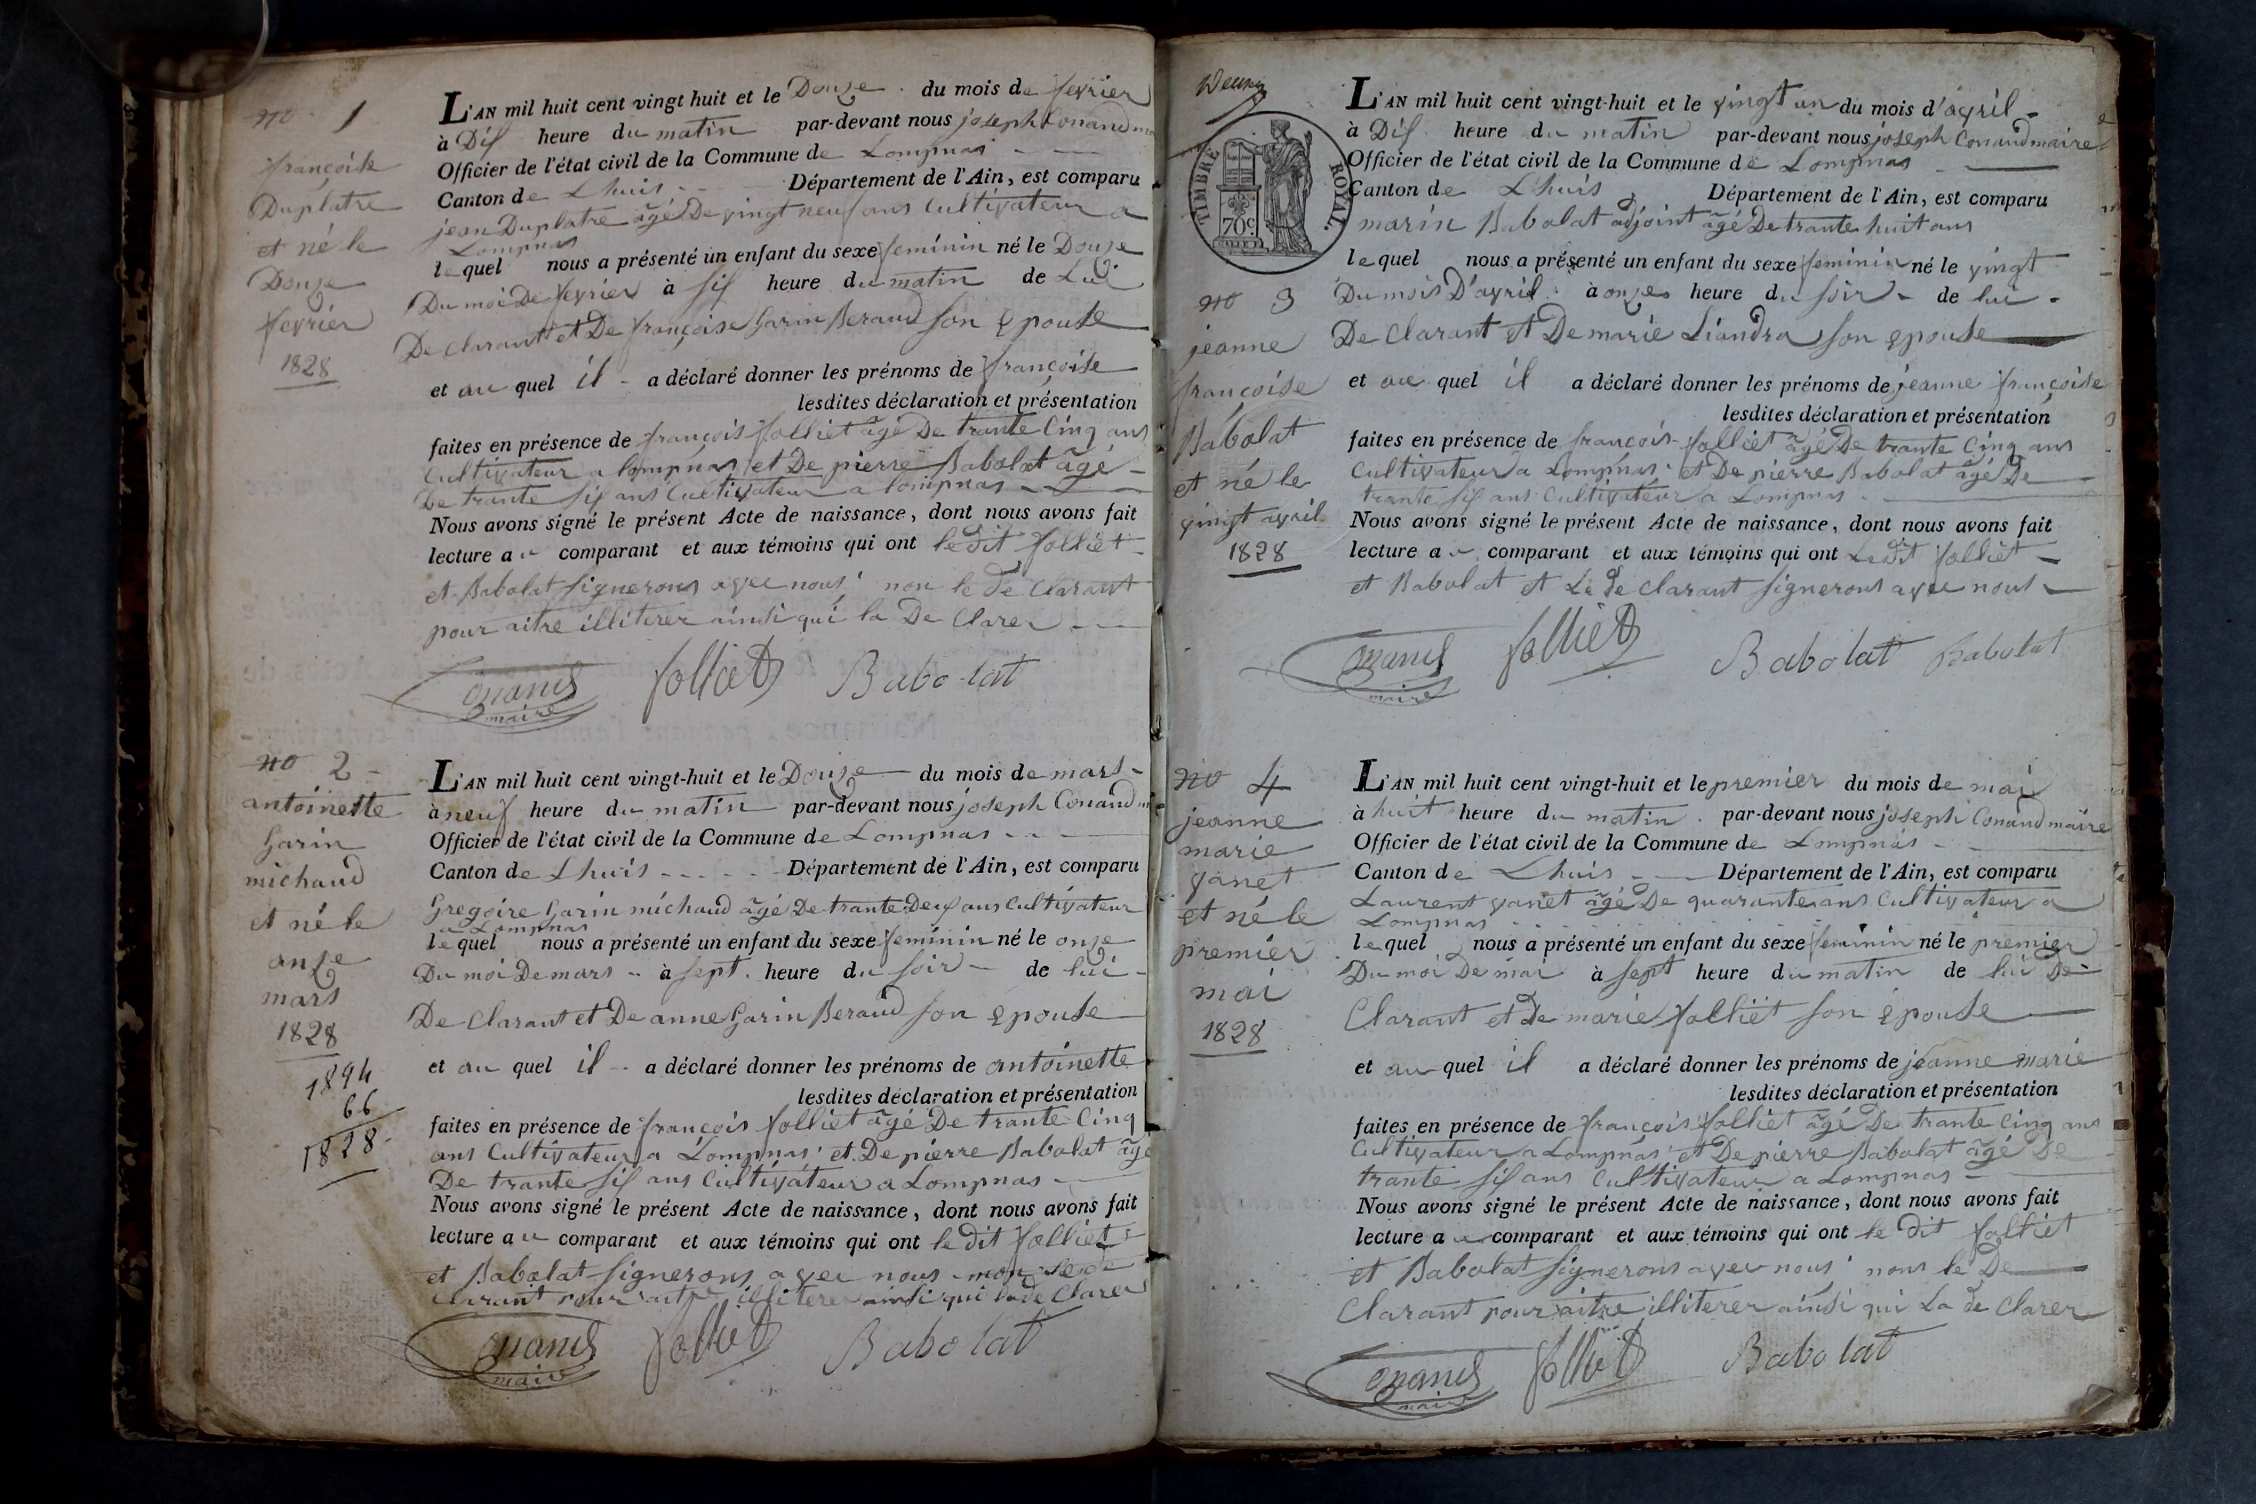 no 1
françoise
Duplatre
et né le
Douze
fevrier
1828
L'AN mil huit cent vingt huit et le Douze du mois de fevrier
à Dis heure du matin par-devant nous joseph Conand
Officier de l'état civil de la Commune de Lompnas
Canton de Lhuis Département de l'Ain, est comparu
jean Duplatre âgé De vingt neuf ans Cultivateur a
Lompnas
lequel nous a présenté un enfant du sexe feminin né le Douze
Du moi De fevrier à sis heure du matin de Lui
De clarant et De françoise Garin Beraud son epouse
et au quel il a déclaré donner les prénoms de françoise
lesdites déclaration et présentation
faites en présence de françois folliet âgé De trante Cinq ans
Cultivateur a lompnas et De pierre Babolat âgé
De trante sis ans Cultivateur a lompnas
Nous avons signé le présent Acte de naissance, dont nous avons fait
lecture au comparant et aux témoins qui ont le dit folliet
et Babolat signerons avec nous non le De clarant
pour aitre illiterer ainsi qui la De clarer
Conand folliet Babolat
maire
no 2
antoinette
Garin
michaud
et né le
onze
mars
1828
1894
66
1828
L'AN mil huit cent vingt-huit et le Douze du mois de mars
à neuf heure du matin par-devant nous joseph Conand
Officier de l'état civil de la Commune de Lompnas
Canton de Lhuis Département de l'Ain, est comparu
Gregoire Garin michaud âgé De trante Deux ans Cultivateur
a Lompnas
lequel nous a présenté un enfant du sexe feminin né le onze
Du moi De mars à sept heure du soir de lui
De clarant et De anne Garin Beraud son epouse
et au quel il a déclaré donner les prénoms de antoinette
lesdites déclaration et présentation
faites en présence de françois folliet âgé De trante Cinq
ans Cultivateur a Lompnas et De pierre Babolat âgé
De trante sis ans Cultivateur a Lompnas
Nous avons signé le présent Acte de naissance, dont nous avons fait
lecture au comparant et aux témoins qui ont le dit folliet
et Babolat signerons avec nous non le De
clarant pour aitre illiterer ainsi qui la de Clarer
Conand folliet Babolat
maire
TIMBRE ROYAL
70c
no 3
jeanne
françoise
Babolat
et né le
vingt avril
1828
L'AN mil huit cent vingt-huit et le vingt un du mois d'avril
à Dis heure du matin par-devant nous joseph Conand maire
Officier de l'état civil de la Commune de Lompnas
Canton de Lhuis Département de l'Ain, est comparu
marin Babolat adjoint âgé De trante huit ans
lequel nous a présenté un enfant du sexe feminin né le vingt
Du mois D'avril à onze heure du soir de lui
De Clarant et De marie Liandra son epouse
et au quel il a déclaré donner les prénoms de jeanne françoise
lesdites déclaration et présentation
faites en présence de françois folliet âgé De trante Cinq ans
Cultivateur a Lompnas et De pierre Babolat âgé De
trante sis ans Cultivateur a Lompnas
Nous avons signé le présent Acte de naissance, dont nous avons fait
lecture au comparant et aux témoins qui ont Le dit folliet
et Babolat et Le De clarant signerons avec nous
Conand folliet Babolat Babolat
maire
no 4
jeanne
marie
vanet
et né le
premier
mai
1828
L'AN mil huit cent vingt-huit et le premier du mois de mai
à huit heure du matin par-devant nous joseph Conand maire
Officier de l'état civil de la Commune de Lompnas
Canton de Lhuis Département de l'Ain, est comparu
Laurent vanet âgé De quarante ans Cultivateur a
Lompnas
lequel nous a présenté un enfant du sexe feminin né le premier
Du moi De mai à sept heure du matin de lui De
Clarant et De marie folliet son epouse
et au quel il a déclaré donner les prénoms de jeanne marie
lesdites déclaration et présentation
faites en présence de françois folliet âgé De trante Cinq ans
Cultivateur a Lompnas et De pierre Babolat âgé De
trante sis ans Cultivateur a Lompnas
Nous avons signé le présent Acte de naissance, dont nous avons fait
lecture au comparant et aux témoins qui ont le dit folliet
et Babolat signerons avec nous nons le De
Clarant pour aitre illiterer ainsi qui La de Clarer
Conand folliet Babolat
maire